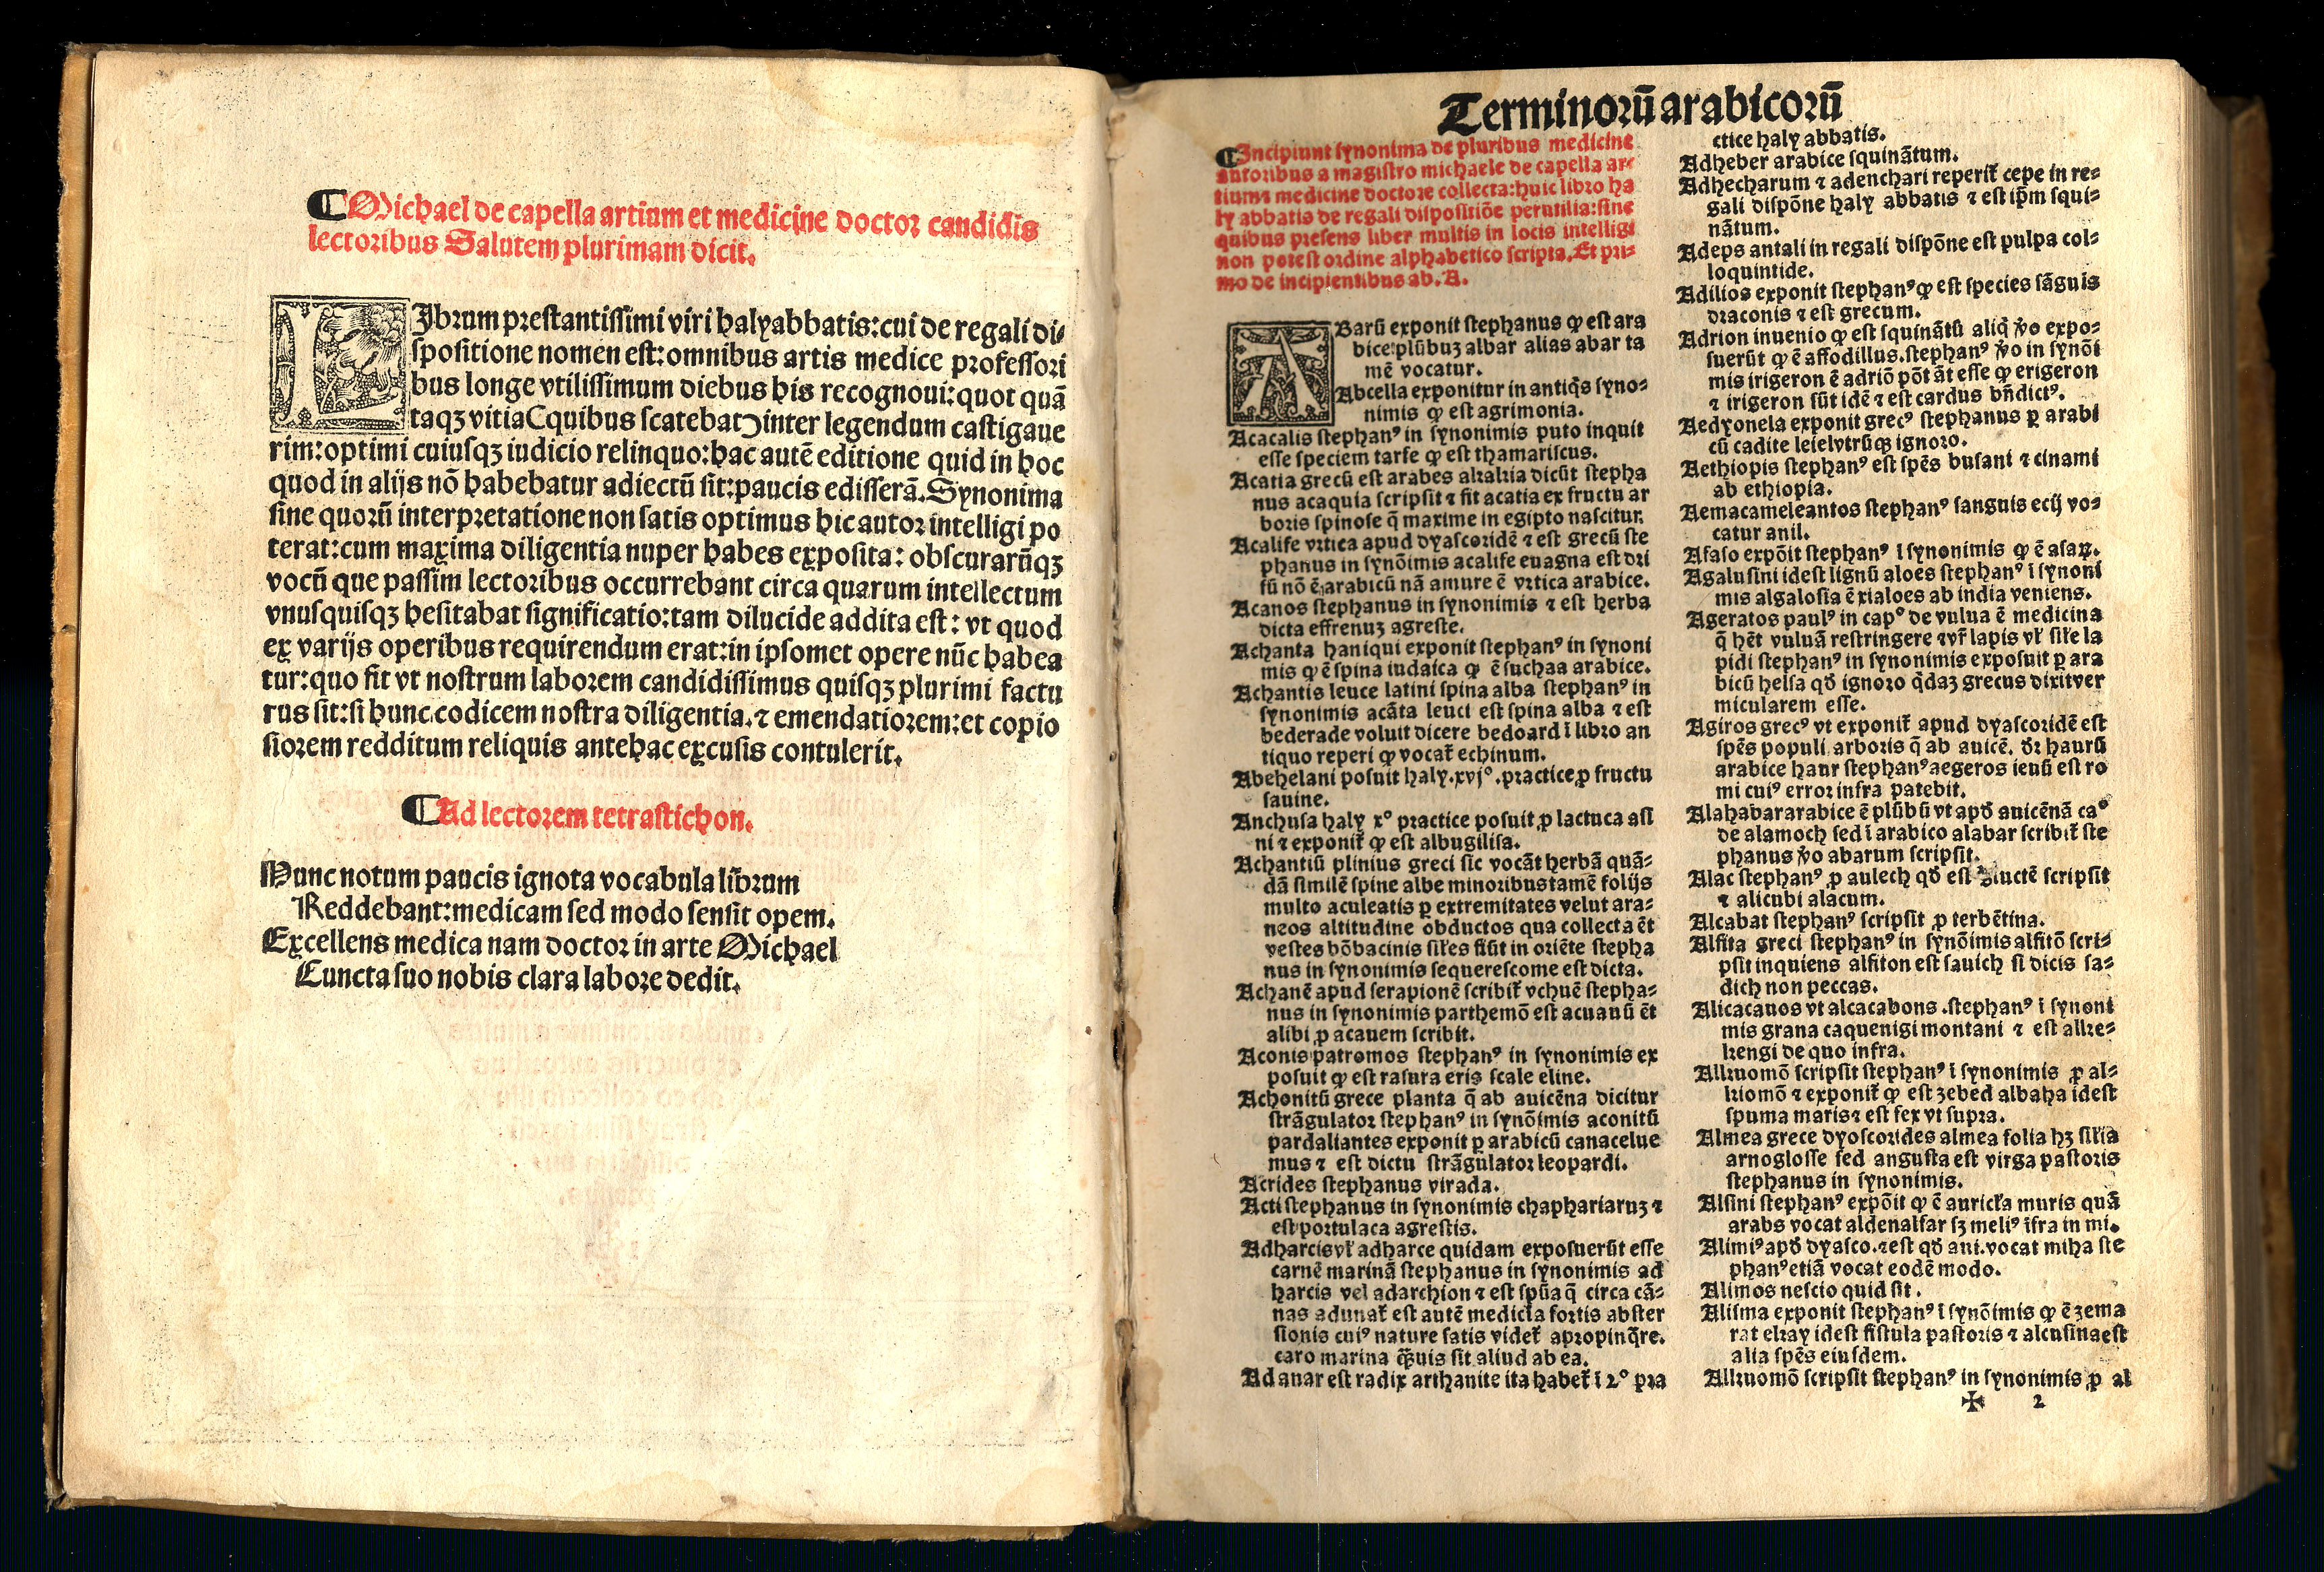 Michael de capella artium et medicine doctor candidis
lectoribus Salutem plurimam dicit.
LIbrum prestantissimi viri halyabbatis: cui de regali di⸗
spositione nomen est: omnibus artis medice professori
bus longe vtilissimum diebus his recognoui: quot quā
taqꝫ vitia (quibus scatebat) inter legendum castigaue
rim: optimi cuiusqꝫ iudicio relinquo: hac autē editione quid in hoc
quod in alijs nō habebatur adiectū sit: paucis edisserā. Synonima
sine quorū interpretatione non satis optimus hic autor intelligi po
terat: cum maxima diligentia nuper habes exposita: obscurarūqꝫ
vocū que passim lectoribus occurrebant circa quarum intellectum
vnusquisqꝫ hesitabat significatio: tam dilucide addita est: vt quod
ex varijs operibus requirendum erat: in ipsomet opere nūc habea
tur: quo fit vt nostrum laborem candidissimus quisqꝫ plurimi factu
rus sit: si hunc codicem nostra diligentia. ⁊ emendatiorem: et copio
siorem redditum reliquis antehac excusis contulerit.
Ad lectorem tetrastichon.
Nunc notum paucis ignota vocabula librum
Reddebant: medicam sed modo sensit opem.
Excellens medica nam doctor in arte Michael
Cuncta suo nobis clara labore dedit.
Terminorū arabicorū
Incipiunt synonima de pluribus medicine
autoribus a magistro michaele de capella ar⸗
tium ⁊ medicine doctore collecta: huic libro ha
ly abbatis de regali dispositiōe perutilia: sine
quibus presens liber multis in locis intelligi
non potest ordine alphabetico scripta. Et pri⸗
mo de incipientibus ab. A.
ABarū exponit stephanus ꝙ est ara
bice: plūbuꝫ albar alias abar ta
mē vocatur.
Abcella exponitur in antiq̄s syno⸗
nimis ꝙ est agrimonia.
Acacalis stephanꝰ in synonimis puto inquit
esse speciem tarfe ꝙ est thamariscus.
Acatia grecū est arabes alxakia dicūt stepha
nus acaquia scripsit ⁊ fit acatia ex fructu ar
boris spinose q̄ maxime in egipto nascitur.
Acalife vrtica apud dyascoridē ⁊ est grecū ste
phanus in synōimis acalife euagna est dri
sū nō ē arabicū nā amure ē vrtica arabice.
Acanos stephanus in synonimis ⁊ est herba
dicta effrenuꝫ agreste.
Achanta haniqui exponit stephanꝰ in synoni
mis ꝙ ē spina iudaica ꝙ ē suchaa arabice.
Achantis leuce latini spina alba stephanꝰ in
synonimis acāta leuci est spina alba ⁊ est
bederade voluit dicere bedoard ī libro an
tiquo reperi ꝙ vocat̄ echinum.
Abehelani posuit haly. xvjº. practice ꝓ fructu
sauine.
Anchusa haly xº practice posuit ꝓ lactuca asi
ni ⁊ exponit̄ ꝙ est albugilisa.
Achantiū plinius greci sic vocāt herbā quā⸗
dā similē spine albe minoribus tamē folijs
multo aculeatis ꝑ extremitates velut ara⸗
neos altitudine obductos qua collecta ēt
vestes bōbacinis sil'es fiūt in oriēte stepha
nus in synonimis sequerescome est dicta.
Achanē apud serapionē scribit̄ vchuē stepha⸗
nus in synonimis parthemō est acuanū ēt
alibi ꝓ acauem scribit.
Aconis patromos stephanꝰ in synonimis ex
posuit ꝙ est rasura eris scale eline.
Achonitū grece planta q̄ ab auicēna dicitur
strāgulator stephanꝰ in synōimis aconitū
pardaliantes exponit ꝑ arabicū canacelue
mus ⁊ est dictu strāgulator leopardi.
Acrides stephanus virada.
Acti stephanus in synonimis chaphariaruꝫ ⁊
est portulaca agrestis.
Adharcis vl' adharce quidam exposuerūt esse
carnē marinā stephanus in synonimis ad
harcis vel adarchion ⁊ est spūa q̄ circa cā⸗
nas adunat̄ est autē medicīa fortis abster
sionis cuiꝰ nature satis videt̄ apropinq̄re.
caro marina q̄uis sit aliud ab ea.
Adanar est radix arthanite ita habet̄ ī 2º pra
ctice haly abbatis.
Adheber arabice squinātum.
Adhecharum ⁊ adenchari reperit̄ cepe in re⸗
gali dispōne haly abbatis ⁊ est ip̄m squi⸗
nātum.
Adeps antali in regali dispōne est pulpa col⸗
loquintide.
Adilios exponit stephanꝰ ꝙ est species sāguis
draconis ⁊ est grecum.
Adrion inuenio ꝙ est squinātū aliq̄ v̄o expo⸗
suerūt ꝙ ē affodillus. stephanꝰ v̄o in synōi
mis irigeron ē adriō pōt āt esse ꝙ erigeron
⁊ irigeron sūt idē ⁊ est cardus bn̄dictꝰ.
Aedyonela exponit grecꝰ stephanus ꝑ arabi
cū cadite leielvtrūqꝫ ignoro.
Aethiopis stephanꝰ est spēs busani ⁊ cinami
ab ethiopia.
Aemacameleantos stephanꝰ sanguis ecij vo⸗
catur anil.
Afaso expōit stephanꝰ ī synonimis ꝙ ē asaꝝ.
Agalusini idest lignū aloes stephanꝰ ī synoni
mis algalosia ē xialoes ab india veniens.
Ageratos paulꝰ in capº de vulua ē medicina
q̄ hēt vuluā restringere ⁊ vr̄ lapis vl' sil'e la
pidi stephanꝰ in synonimis exposuit ꝑ ara
bicū helsa qd̄ ignoro q̄daꝫ grecus dixit ver
micularem esse.
Agiros grecꝰ vt exponit̄ apud dyascoridē est
spēs populi arboris q̄ ab auicē. dr̄ haurū
arabice haur stephanꝰ aegeros ieuū est ro
mi cuiꝰ error infra patebit.
Alahabar arabice ē plūbū vt apd̄ auicēnā caº
de alamoch sed ī arabico alabar scribit̄ ste
phanus v̄o abarum scripsit.
Alac stephanꝰ ꝓ aulech qd̄ est gluctē scripsit
⁊ alicubi alacum.
Alcabat stephanꝰ scripsit ꝓ terbētina.
Alfita greci stephanꝰ in synōimis alfitō scri⸗
psit inquiens alfiton est sauich si dicis sa⸗
dich non peccas.
Alicacauos vt alcacabons. stephanꝰ ī synoni
mis grana caquenigi montani ⁊ est alke⸗
kengi de quo infra.
Alkuomō scripsit stephanꝰ ī synonimis ꝓ al⸗
kiomō ⁊ exponit̄ ꝙ est zebed albaha idest
spuma maris ⁊ est fex vt supra.
Almea grece dyoscorides almea folia hꝫ sil'ia
arnoglosse sed angusta est virga pastoris
stephanus in synonimis.
Alsini stephanꝰ expōit ꝙ ē auricl'a muris quā
arabs vocat aldenalfar sꝫ meliꝰ īfra in mi.
Alimiꝰ apd̄ dyasco. ⁊ est qd̄ aui. vocat miha ste
phanꝰ etiā vocat eodē modo.
Alimos nescio quid sit.
Alisma exponit stephanꝰ ī synōimis ꝙ ē zema
rat elray idest fistula pastoris ⁊ alcusina est
alia spēs eiusdem.
Alkuomō scripsit stephanꝰ in synonimis ꝓ al
✠ 2